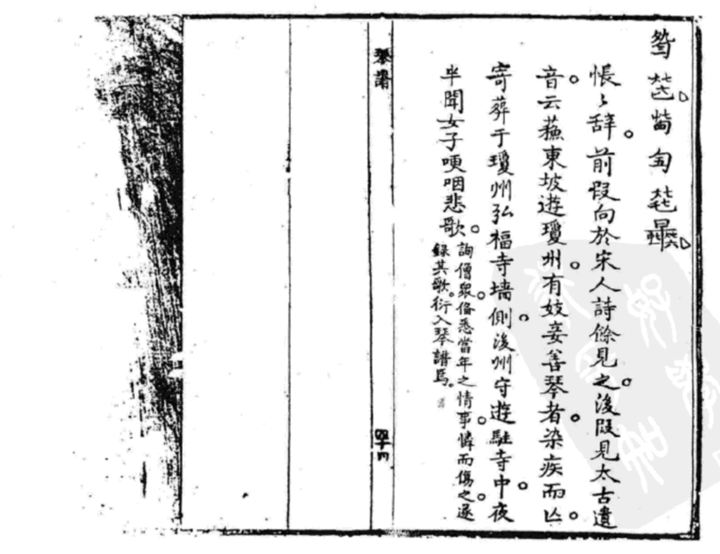 悵々辞前段向於宋人詩餘見之後段見太古遺
音云蘇東坡遊瓊州有妓妾善琴者染疾而亡
寄葬于瓊州弘福寺墙側後州守遊駐寺中夜
半聞女子哽咽悲歌詢僧衆俻悉當年之情事憐而傷之遂
錄其歌衍入琴譜焉
琴譜